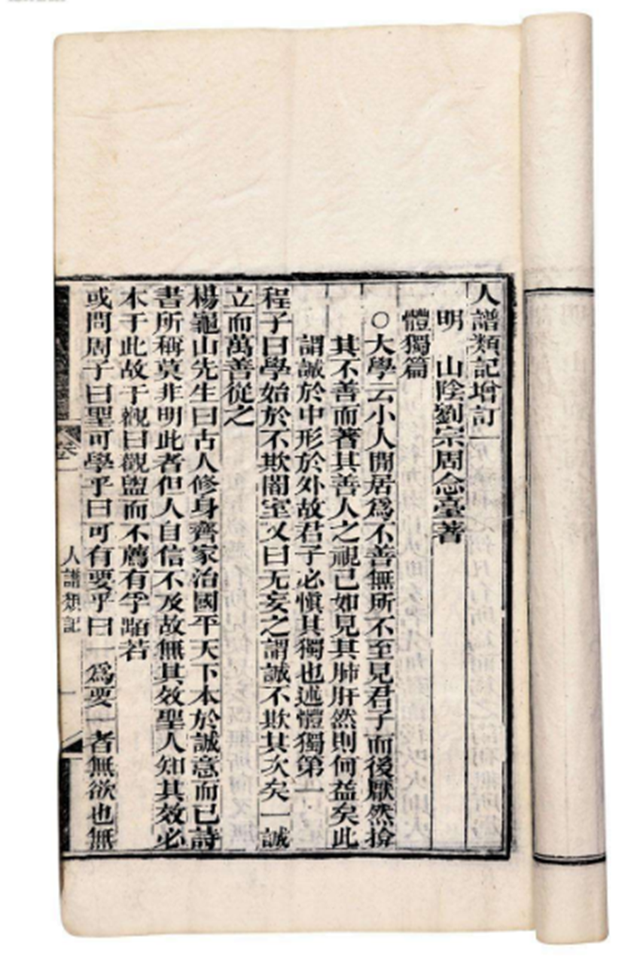 人譜類記增訂一
明　山陰劉宗周念臺著
體獨篇
○大學云小人閒居爲不善無所不至見君子而後厭然揜
其不善而著其善人之視己如見其肺肝然則何益矣此
謂誠於中形於外故君子必愼其獨也述體獨第一
程子曰學始於不欺闇室又曰无妄之謂誠不欺其次矣一誠
立而萬善從之
楊龜山先生曰古人修身齊家治國平天下本於誠意而已詩
書所稱莫非明此者但人自信不及故無其效聖人知其效必
本于此故于觀曰觀盥而不薦有孚顒若
或問周子曰聖可學乎曰可有要乎曰一爲要一者無欲也無
人譜類記
一